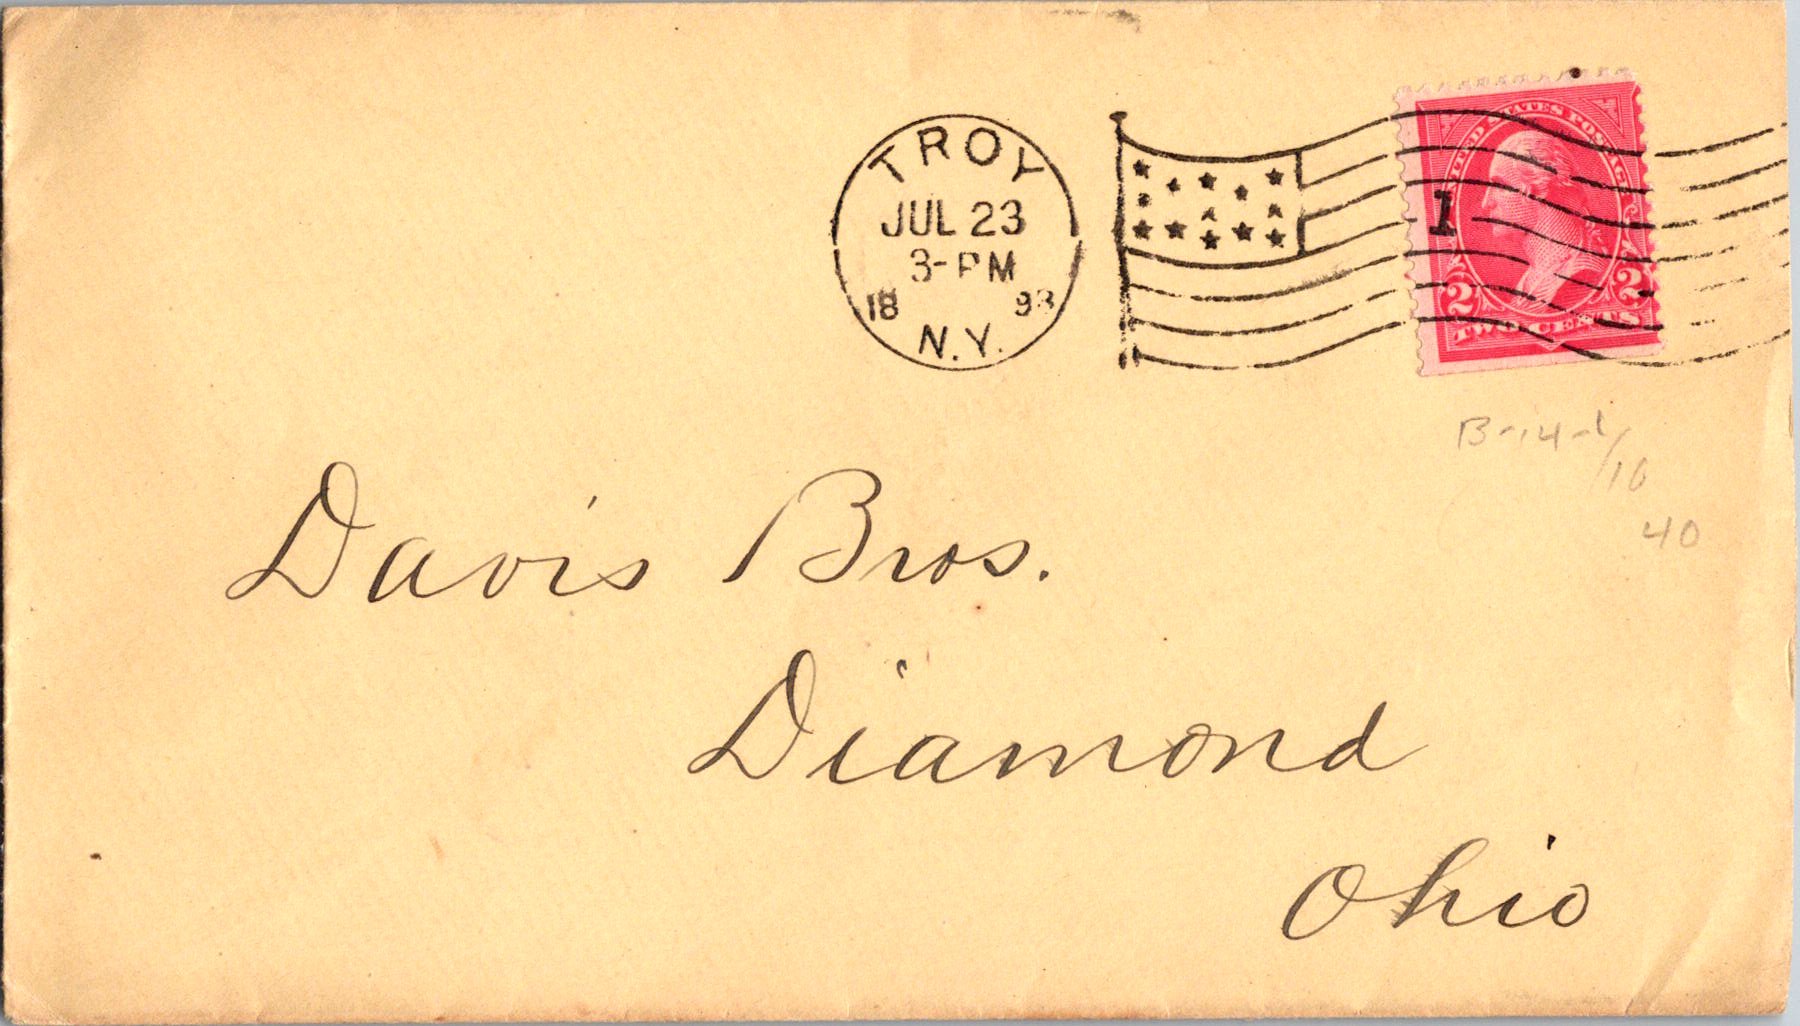 TROY
JUL 23
3-PM
18 98
N.Y.
1
UNITED STATES POSTAGE
2 2
TWO CENTS
B-14-1/10
40
Davis Bros.
Diamond
Ohio